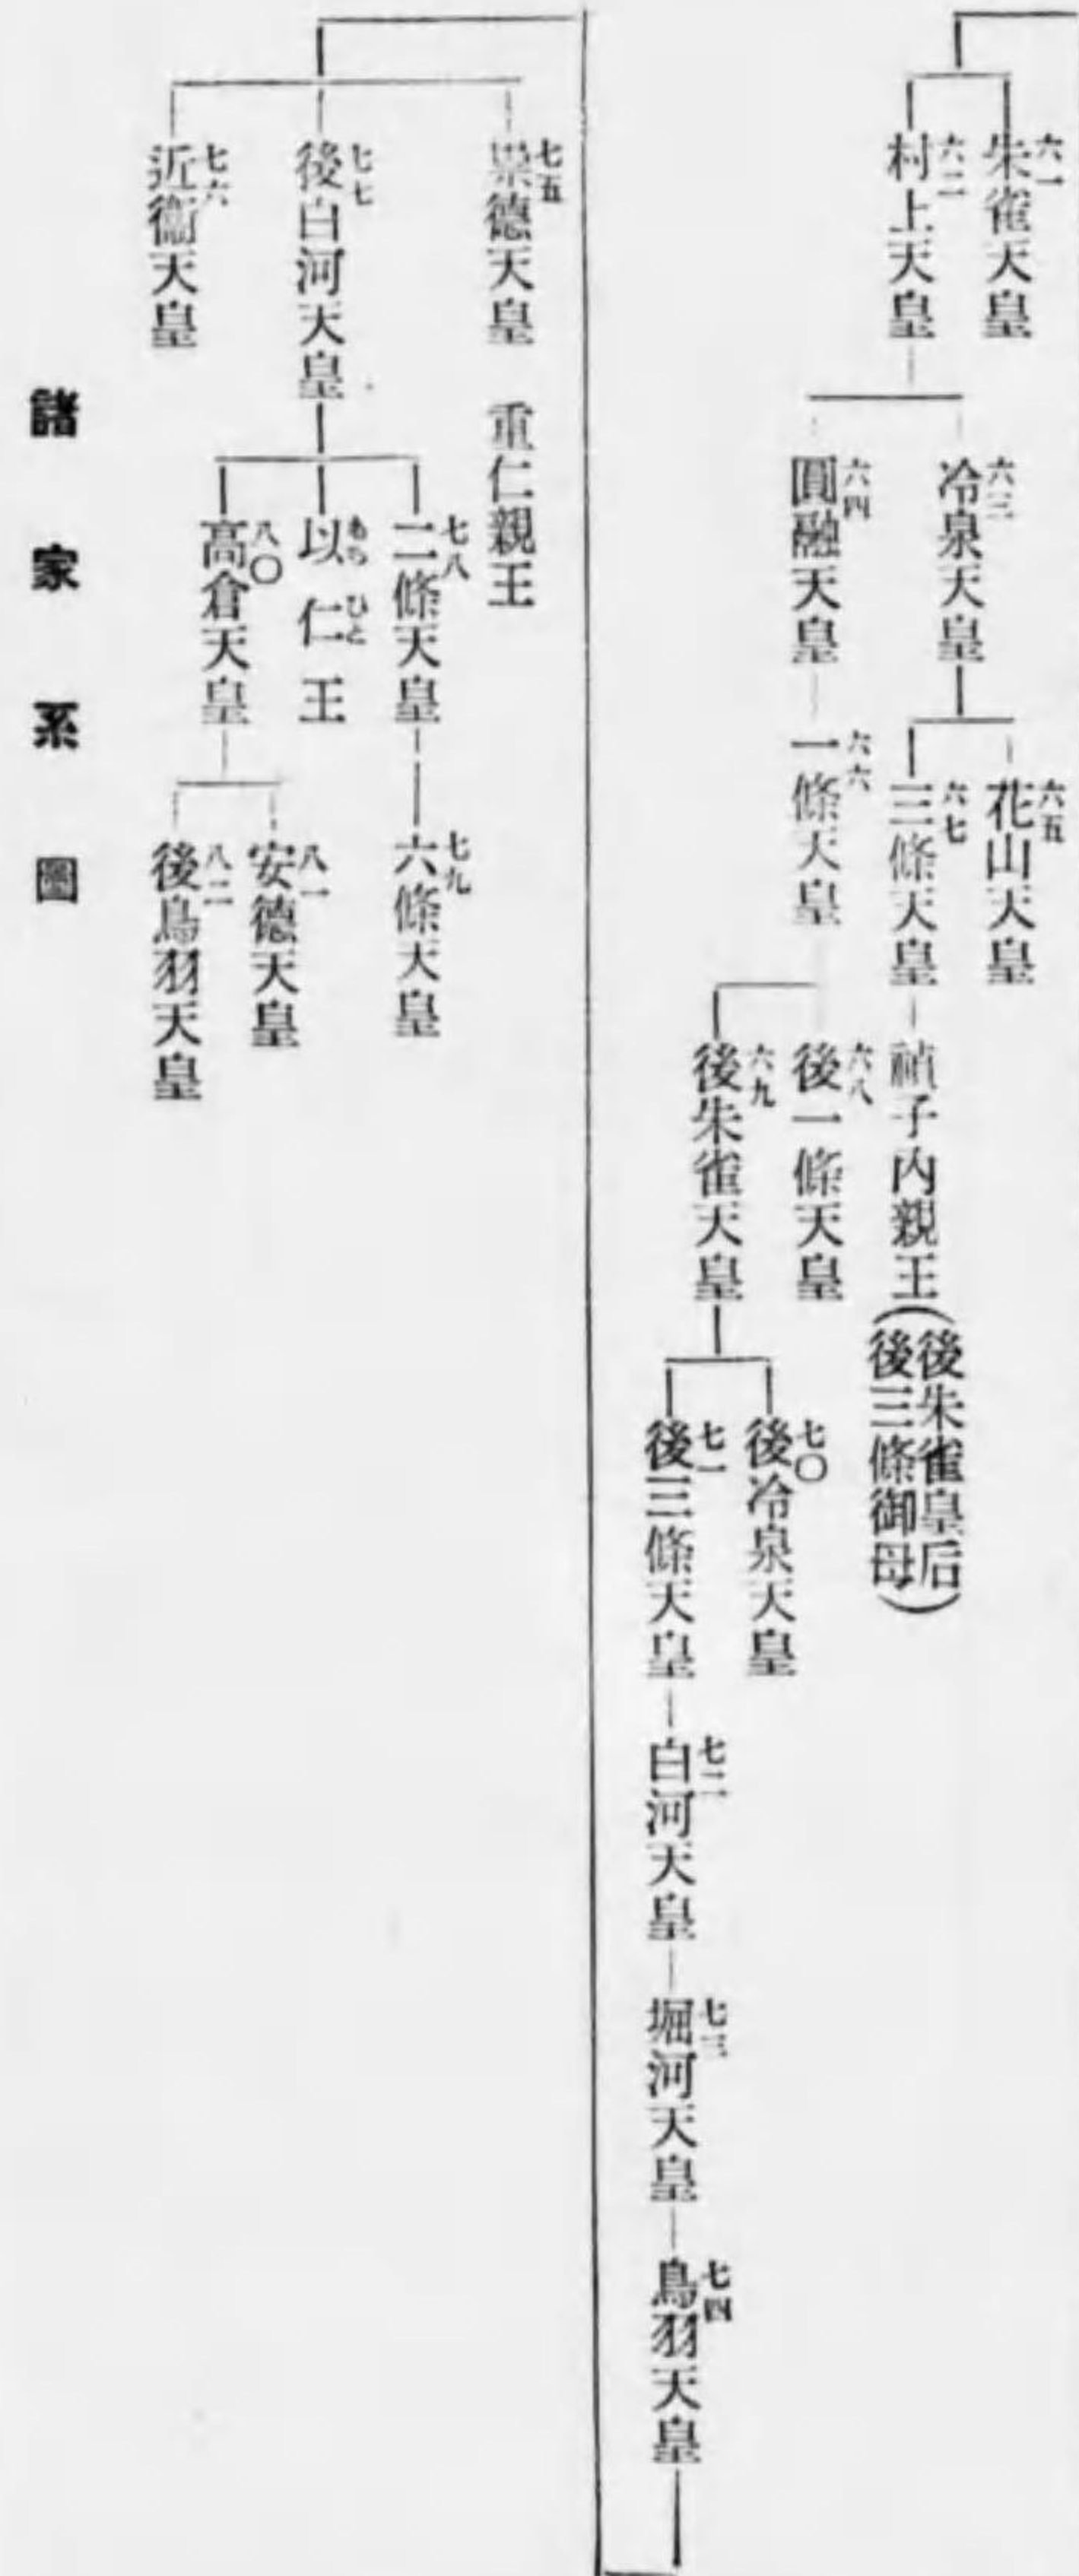 六一
朱雀天皇
六二
村上天皇
六三
冷泉天皇
六五
花山天皇
六七
三條天皇
禎子內親王(後朱雀皇后
後三條御母)
六四
圓融天皇
六六
一條天皇
六八
後一條天皇
六九
後朱雀天皇
七〇
後冷泉天皇
七一
後三條天皇
七二
白河天皇
七三
堀河天皇
七四
鳥羽天皇
七五
崇德天皇 重仁親王
七七
後白河天皇
七八
二條天皇
七九
六條天皇
もち ひと
以仁王
八〇
高倉天皇
八一
安德天皇
八二
後鳥羽天皇
七六
近衞天皇
諸家系圖